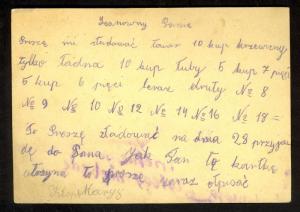 Szanowny Panie
Proszę mi składować towar 10 kup krzewiny
tylko ładna 10 kup luby 5 kup 7 pięci
5 kup 6 pięci druty № 8
№ 9 № 10 № 12 № 14 № 16 № 18 =
To Proszę składować na dnia 28 przyja
dę do Pana Jak Pan tę kartkę
to proszę zaraz